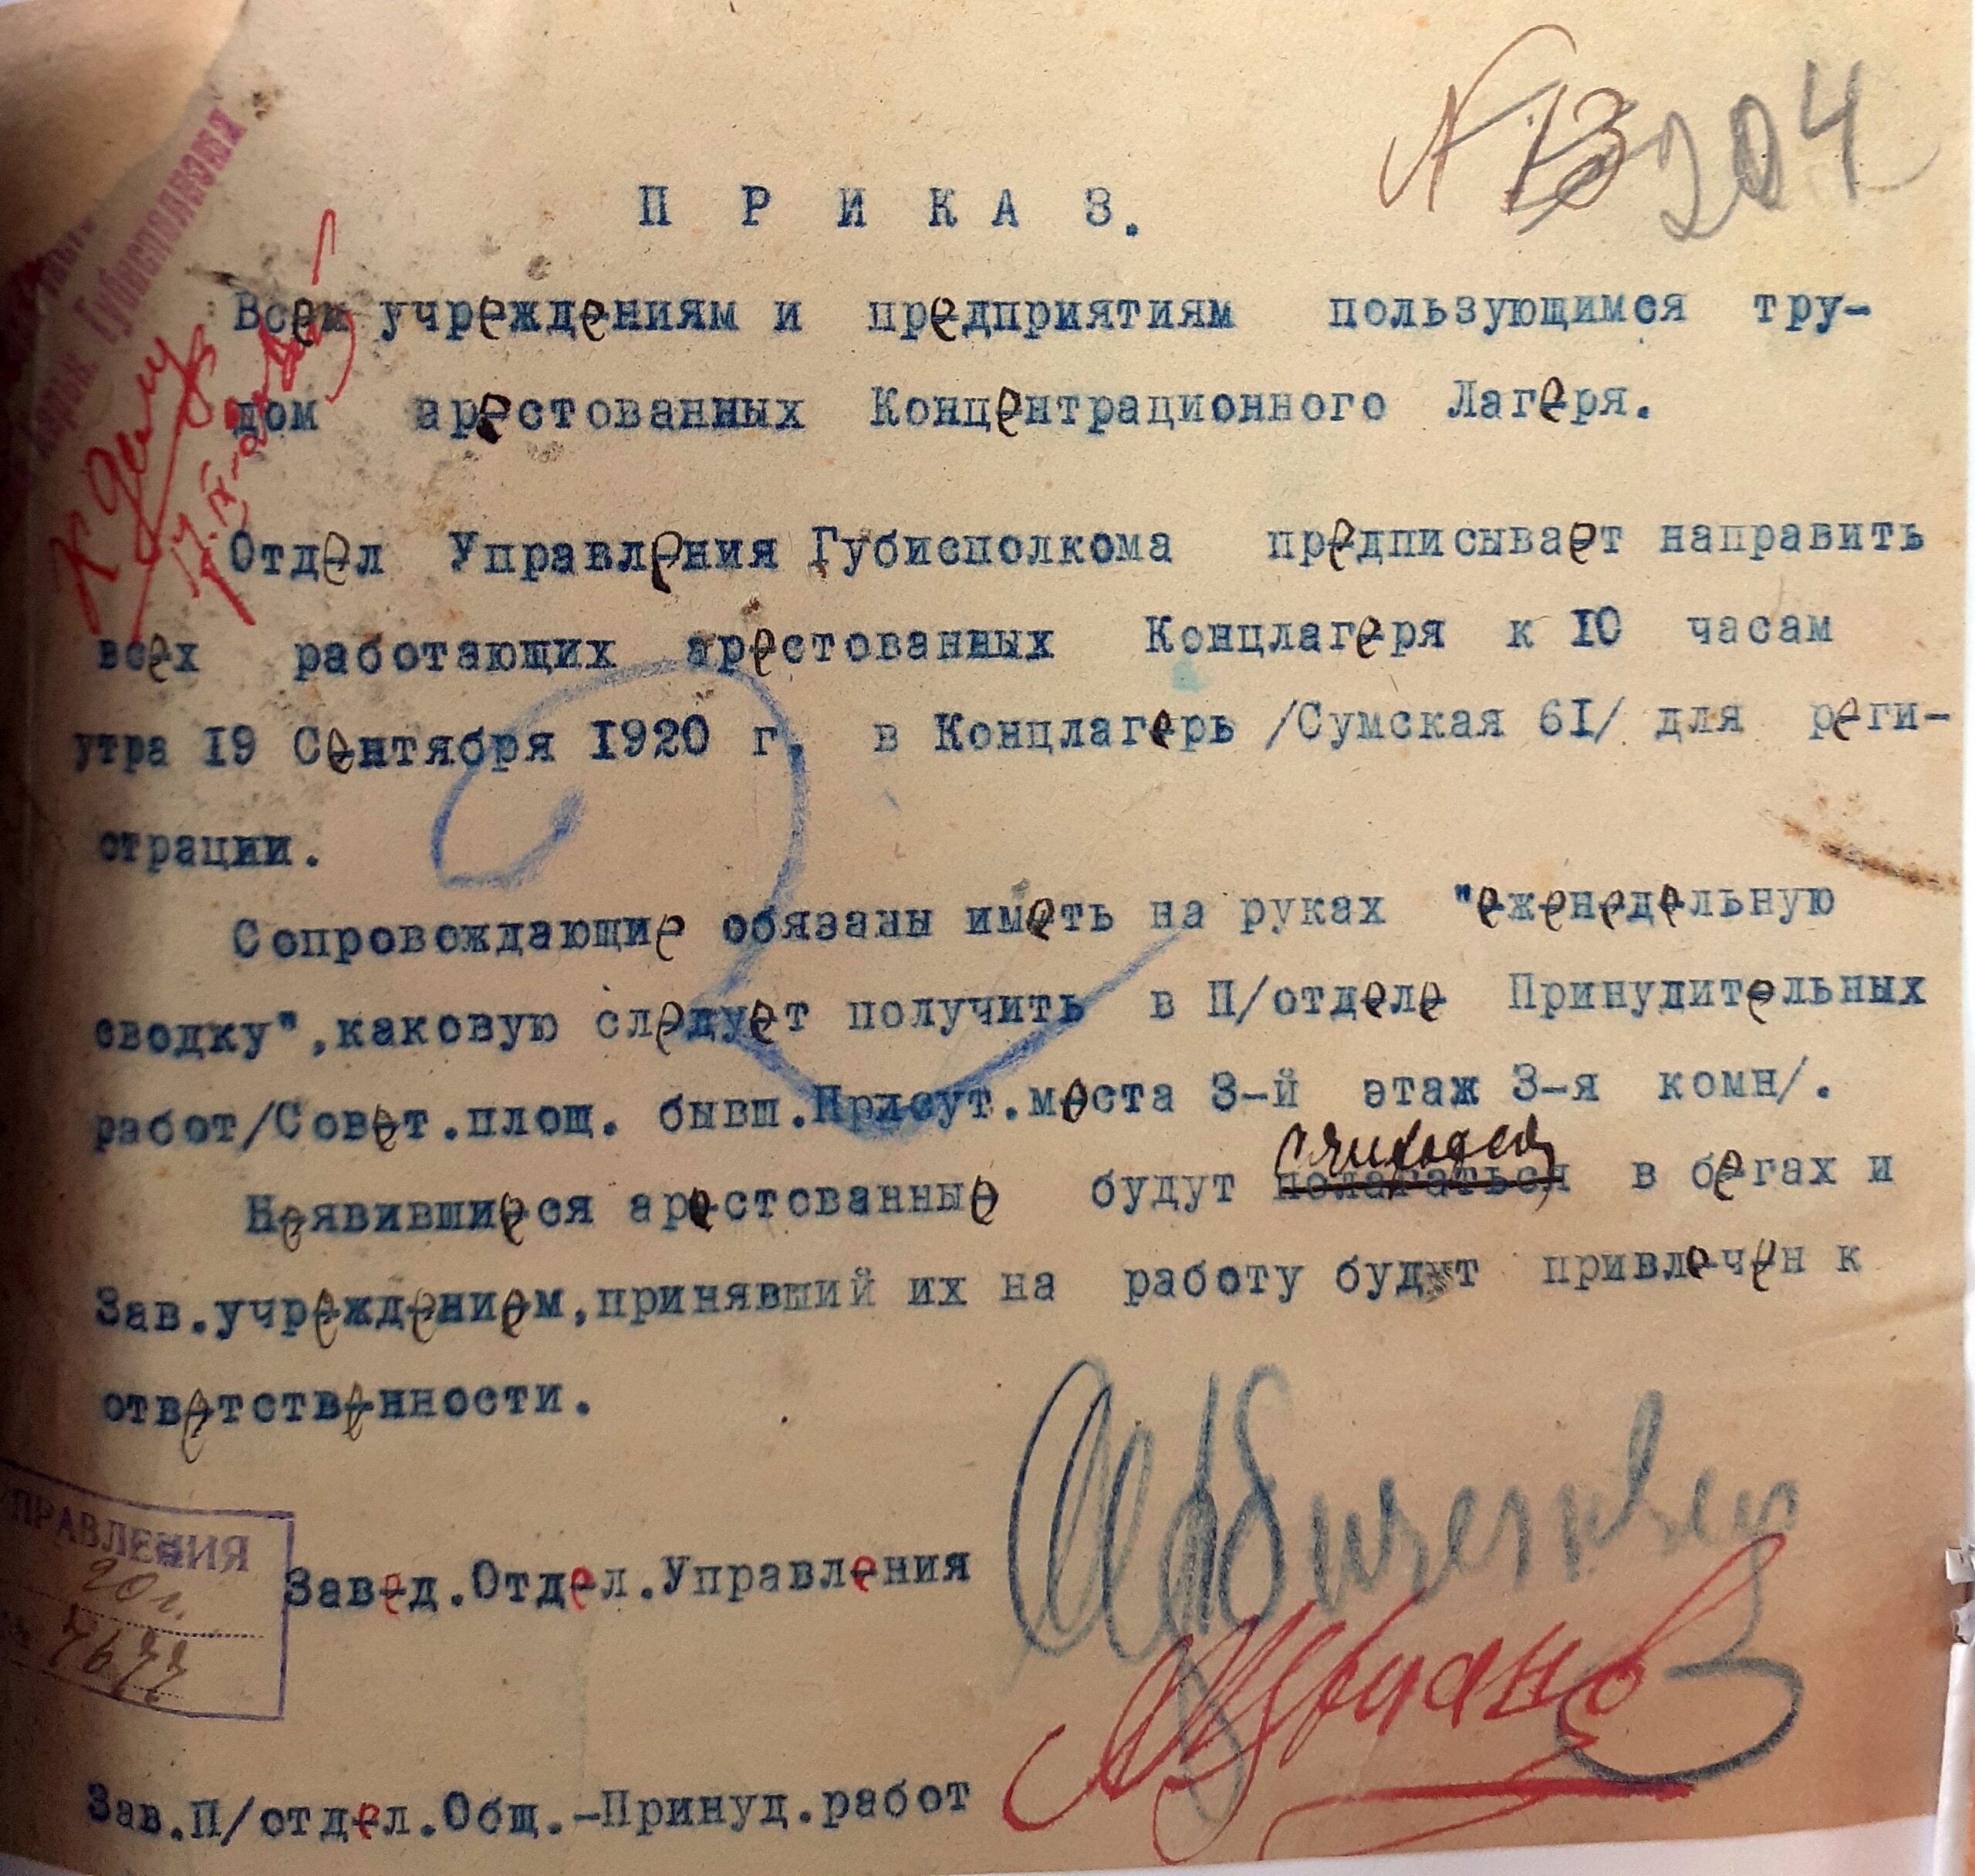 Губисполкома
№ 13 204
ПРИКАЗ.
Всем учреждениям и предприятиям пользующимся тру-
дом арестованных Концентрационного Лагеря.
К делу
Отдел Управления Губисполкома предписывает направить
всех работающих арестованных Концлагеря к 10 часам
утра 19 Сентября 1920 г. в Концлагерь /Сумская 61/ для реги-
страции.
Сопровождающие обязаны иметь на руках "еженедельную
сводку",каковую следует получить в П/отделе Принудительных
работ/Совет.площ. бывш.Присут.места 3-й этаж 3-я комн/.
считаться
Неявившиеся арестованные будут полагаться в бегах и
Зав.учреждением,принявший их на работу будут привлечен к
ответственности.
ПРАВЛЕНИЯ
20 г.
7677
Завед.Отдел.Управления
Зав.П/отдел.Общ.-Принуд.работ